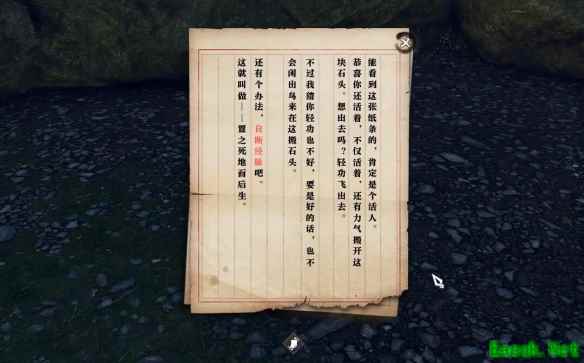 能看到这张纸条的，肯定是个活人。
恭喜你还活着，不仅活着，还有力气搬开这
块石头。想出去吗？轻功飞出去。
不过我猜你轻功也不好，要是好的话，也不
会闲出鸟来在这搬石头。
还有个办法，自断经脉吧。
这就叫做——置之死地而后生。